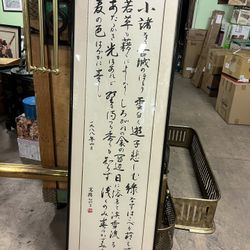 小諸なる古城のほとり 雲白く遊子悲しむ 緑なすはこべは萌えず
若草も藉くによしなし しろがねの衾の岡辺 日に溶けて淡雪流る
あたゝかき光はあれど 野に満つる香も知らず 浅くのみ春は霞みて
麦の色はつかに青し
一九八八年